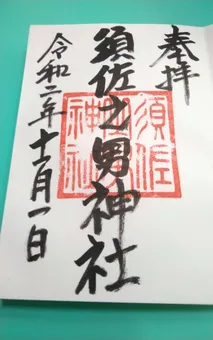 奉拝
須佐之男神社
令和二年十一月一日